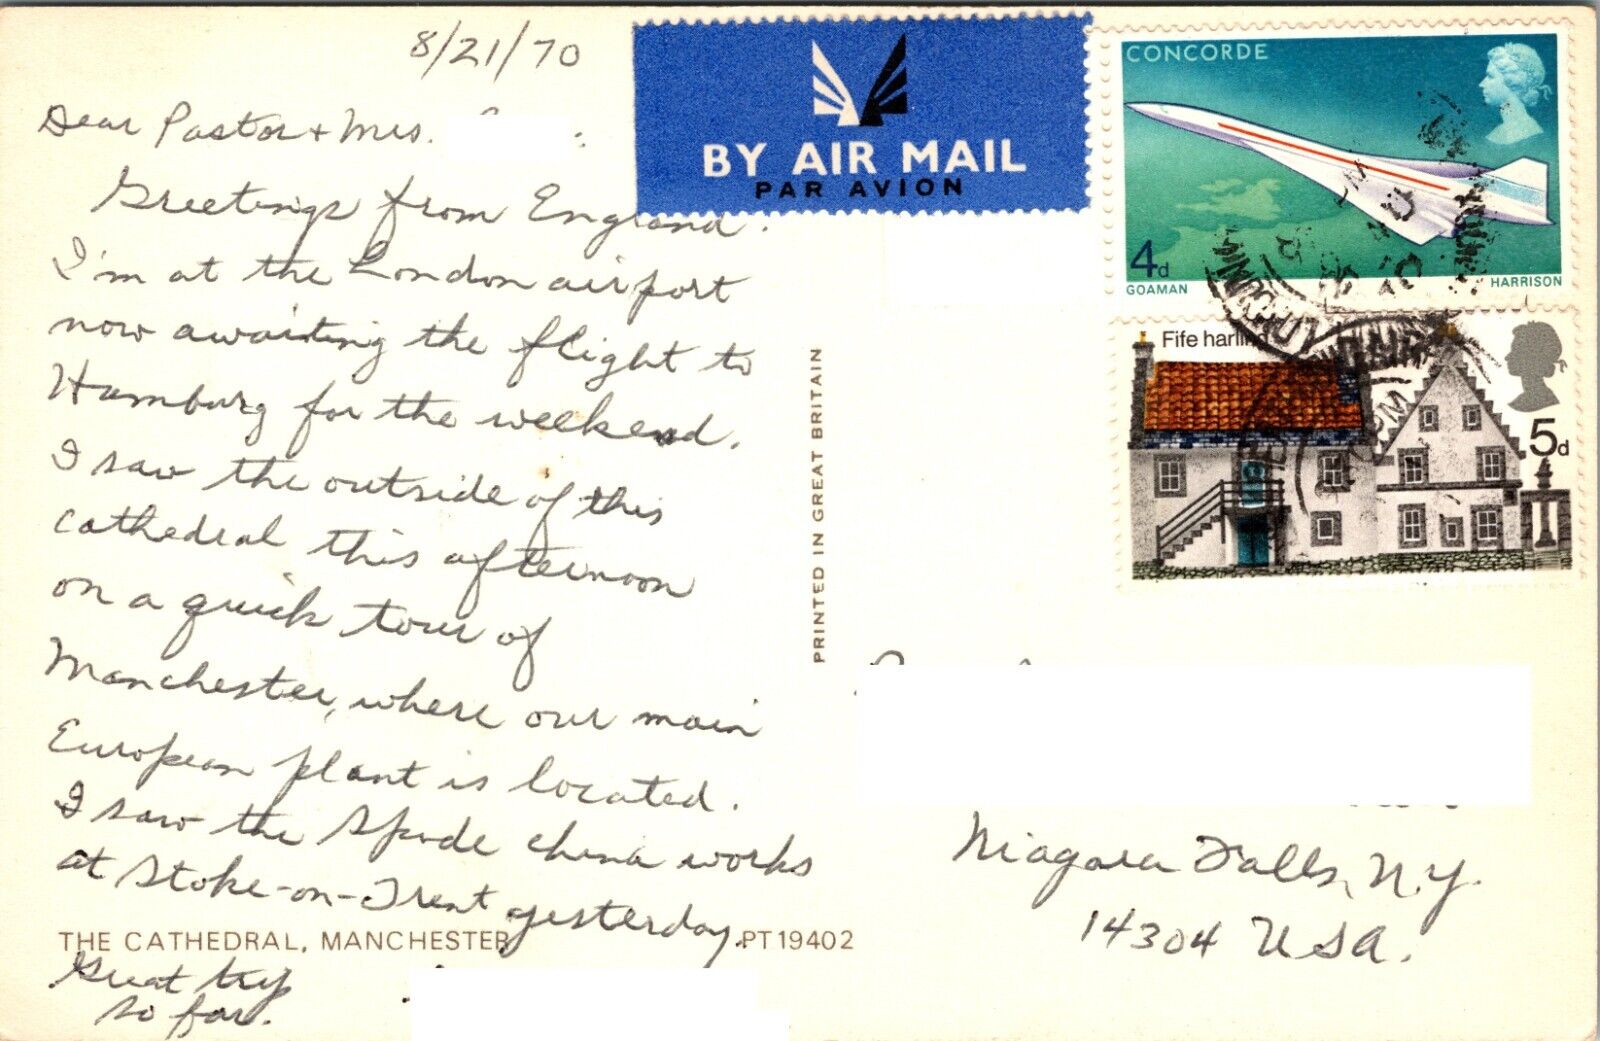 8/21/70
Dear Pastor + Mrs.
Greetings from England.
I'm at the London airport
now awaiting the flight to
Hamburg for the weekend.
I saw the outside of this
cathedral this afternoon
on a quick tour of
Manchester, where our main
European plant is located.
I saw the Spode china works
at Stoke-on-Trent yesterday.
THE CATHEDRAL, MANCHESTER PT19402
Great trip
so far.
PRINTED IN GREAT BRITAIN
BY AIR MAIL
PAR AVION
CONCORDE
4d
GOAMAN HARRISON
Fife harling
5d
Niagara Falls, N.Y.
14304 USA.